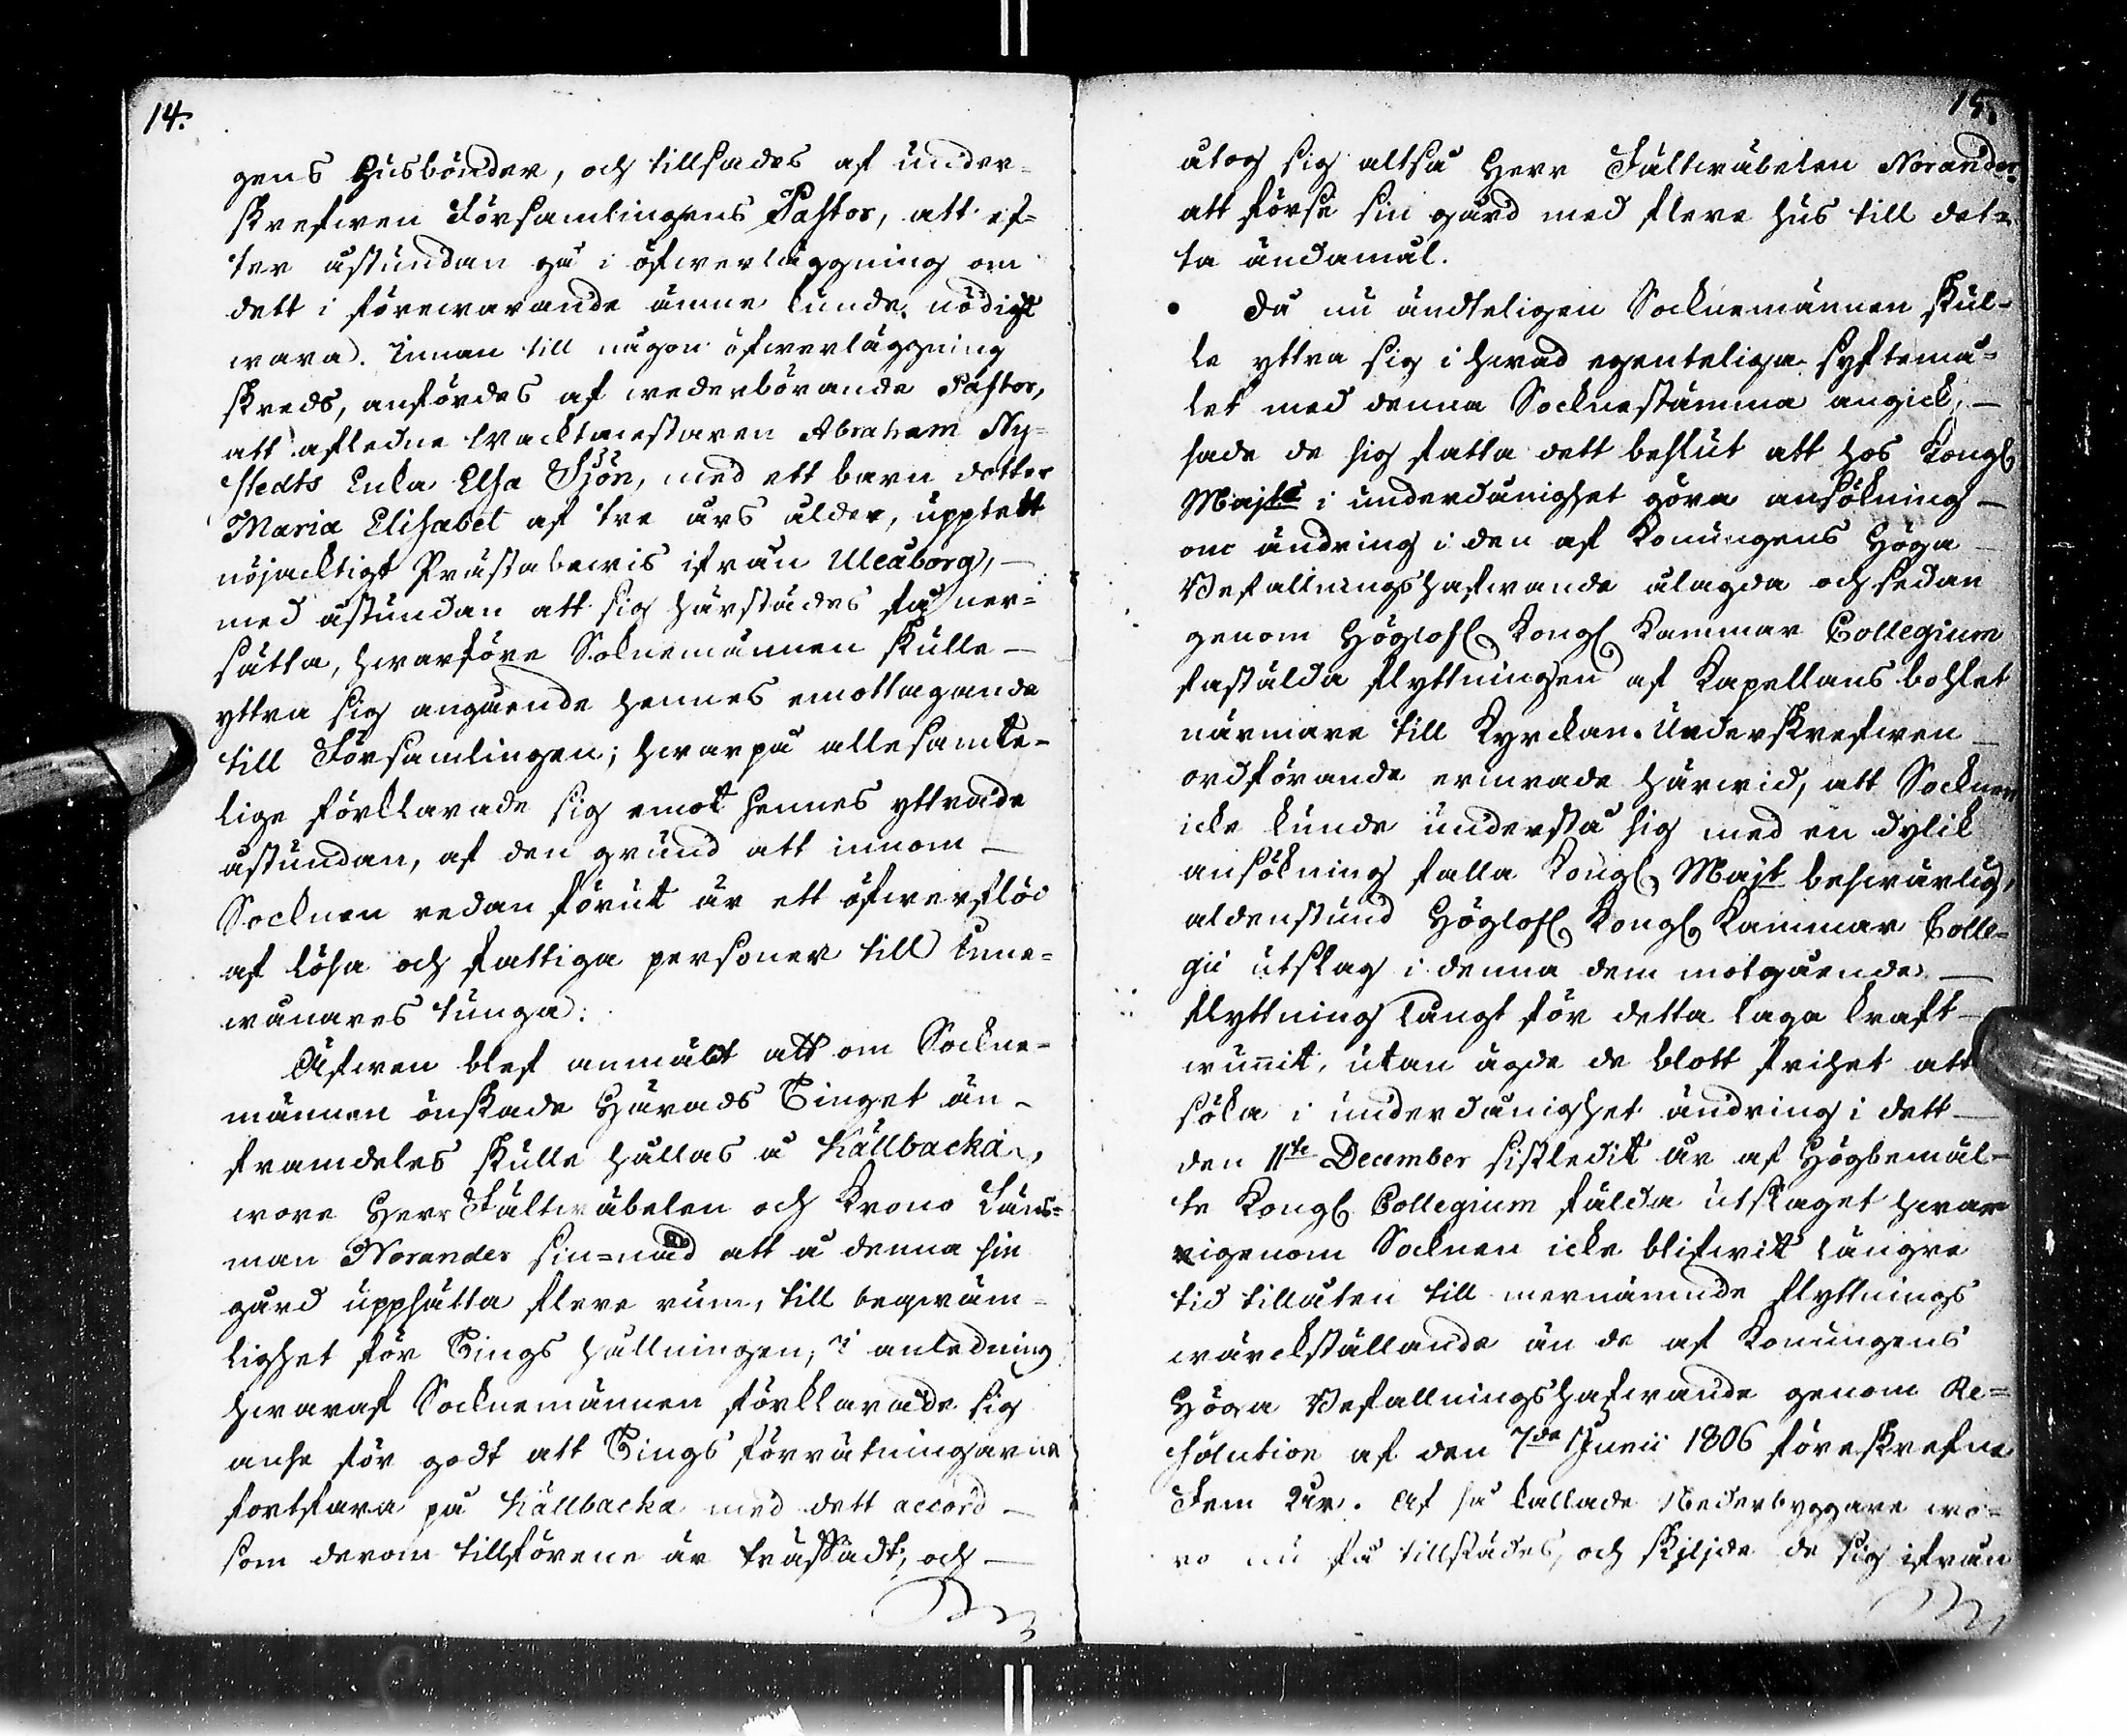 14.
gens Husbönder, och tillsades af under-
skrefwen Församlingens Pastor, att ef-
ter åstundan gå i öfwerläggning om
dett i förewarande ämne kunde nödigt
wara. Innan till någon öfwerläggning
skreds, anfördes af wederbörande Pastor,
att afledne Wacktmestaren Abraham Ny-
stedts Enka Elsa Sjön, med ett barn dotter
Maria Elisabet af tre års ålder, upptett
nöjacktigt Prästabewis ifrån Uleåborg, —
med åstundan att sig härstädes få ner-
sätta, hwarföre Soknemännen skulle —
yttra sig angående hennes emottagande
till Församlingen; hwarpå allesamte-
lige förklarade sig emot hennes yttrade
åstundan, af den grund att innom —
Socknen redan förut är ett öfwerflöd
af lösa och fattiga personer till Inne-
wånares tunga.
Äfwen blef anmält att om Sockne-
männen önskade Härads Tinget än-
framdeles skulle hållas å Källbacka,
wore Herr Fältwäbelen och Krono Läns-
man Norander sin=nad att å denna sin
gård uppsätta flere rum, till beqwäm-
lighet för Tings hållningen; i anledning
hwaraf Socknemännen förklarade sig
anse för godt att Tings förrätningarne
fortfara på Källbacka med dett accord —
som derom tillförene är träffadt; och —
15.
åtog sig altså Herr Fältwäbelen Norander
att förse sin gård med flere hus till det-
ta ändamål.
Då nu ändteligen Socknemännen skul-
le yttra sig i hwad egenteliga syftemå-
let med denna Socknestämma angick, —
sade de sig fatta dett beslut att hos Kongl
Majt i underdånighet göra ansökning —
om ändring i den af Konungens Höga —
Befallningshafwande ålagda och sedan
genom Höglofl Kongl Kammar Collegium
fastälda flyttningen af Kapellans bohlet
närmare till Kyrckan. Underskrefwen —
ordförande erinrade härwid, att Socknen
icke kunde understå sig med en dylik
ansökning falla Kongl Majt beswärlig,
aldenstund Höglofl Kongl Kammar Colle-
gii utslag i denna dem motgående —
flyttning långt för detta laga kraft —
wunnit, utan ägde de blott frihet att
söka i underdånighet ändring i dett —
den 11te December sistledit år af Högbemäl-
te Kongl Collegium fälda utslaget hwar
igenom Socknen icke blifwit längre
tid tillåten till mernämnde flyttnings
wärckställande än de af Konungens
Höga Befallningshafwande genom Re-
solution af den 7de Junii 1806 föreskrefne
Fem år. Af så kallade Nederbyggare wo-
ro nu få tillstädes, och skiljde de sig ifrån